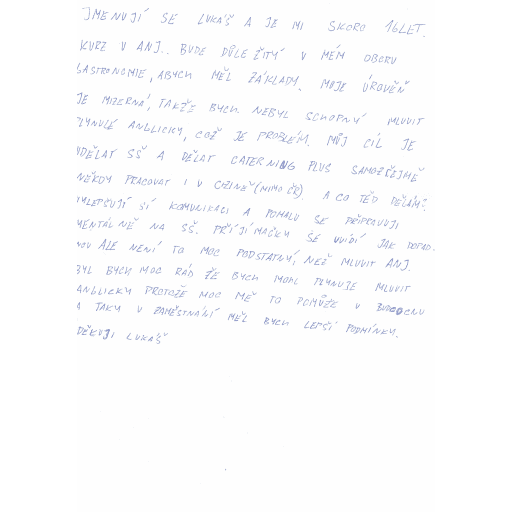 JMENUJÍ SE LUKÁŠ A JE MI SKORO 16LET.
KURZ V ANJ.. BUDE DŮLEŽITÝ V MÉM OBORU
GASTRONOMIE, ABYCH MĚL ZÁKLADY. MOJE ÚROVĚŇ
JE MIZERNÁ, TAKŽE BYCH NEBYL SCHOPNÝ MLUVIT
PLYNULE ANGLICKY, COŽ JE PROBLÉM. MŮJ CÍL JE
UDĚLAT SŠ A DĚLAT CATERNING PLUS SAMOZŘEJMĚ
NĚKDY PRACOVAT I V CIZINĚ (MIMO ČR). A CO TĚD DĚLÁM?
VYLEPŠUJÍ SÍ KOMUNIKACI A POMALU SE PŘIPRAVUJI
MENTÁLNĚ NA SŠ. PŘÍJÍMAČKY SE UVIDÍ JAK DOPAD-
NOU ALE NENÍ TO MOC PODSTATNÝ, NEŽ MLUVIT ANJ.
BYL BYCH MOC RÁD ŽE BYCH MOHL PLYNULE MLUVIT
ANGLICKY PROTOŽE MOC MĚ TO POMŮŽE V BUDOCNU
A TAKY V ZAMĚSTNÁNÍ MĚL BYCH LEPŠÍ PODMÍNKY.
DĚKUJI LUKÁŠ